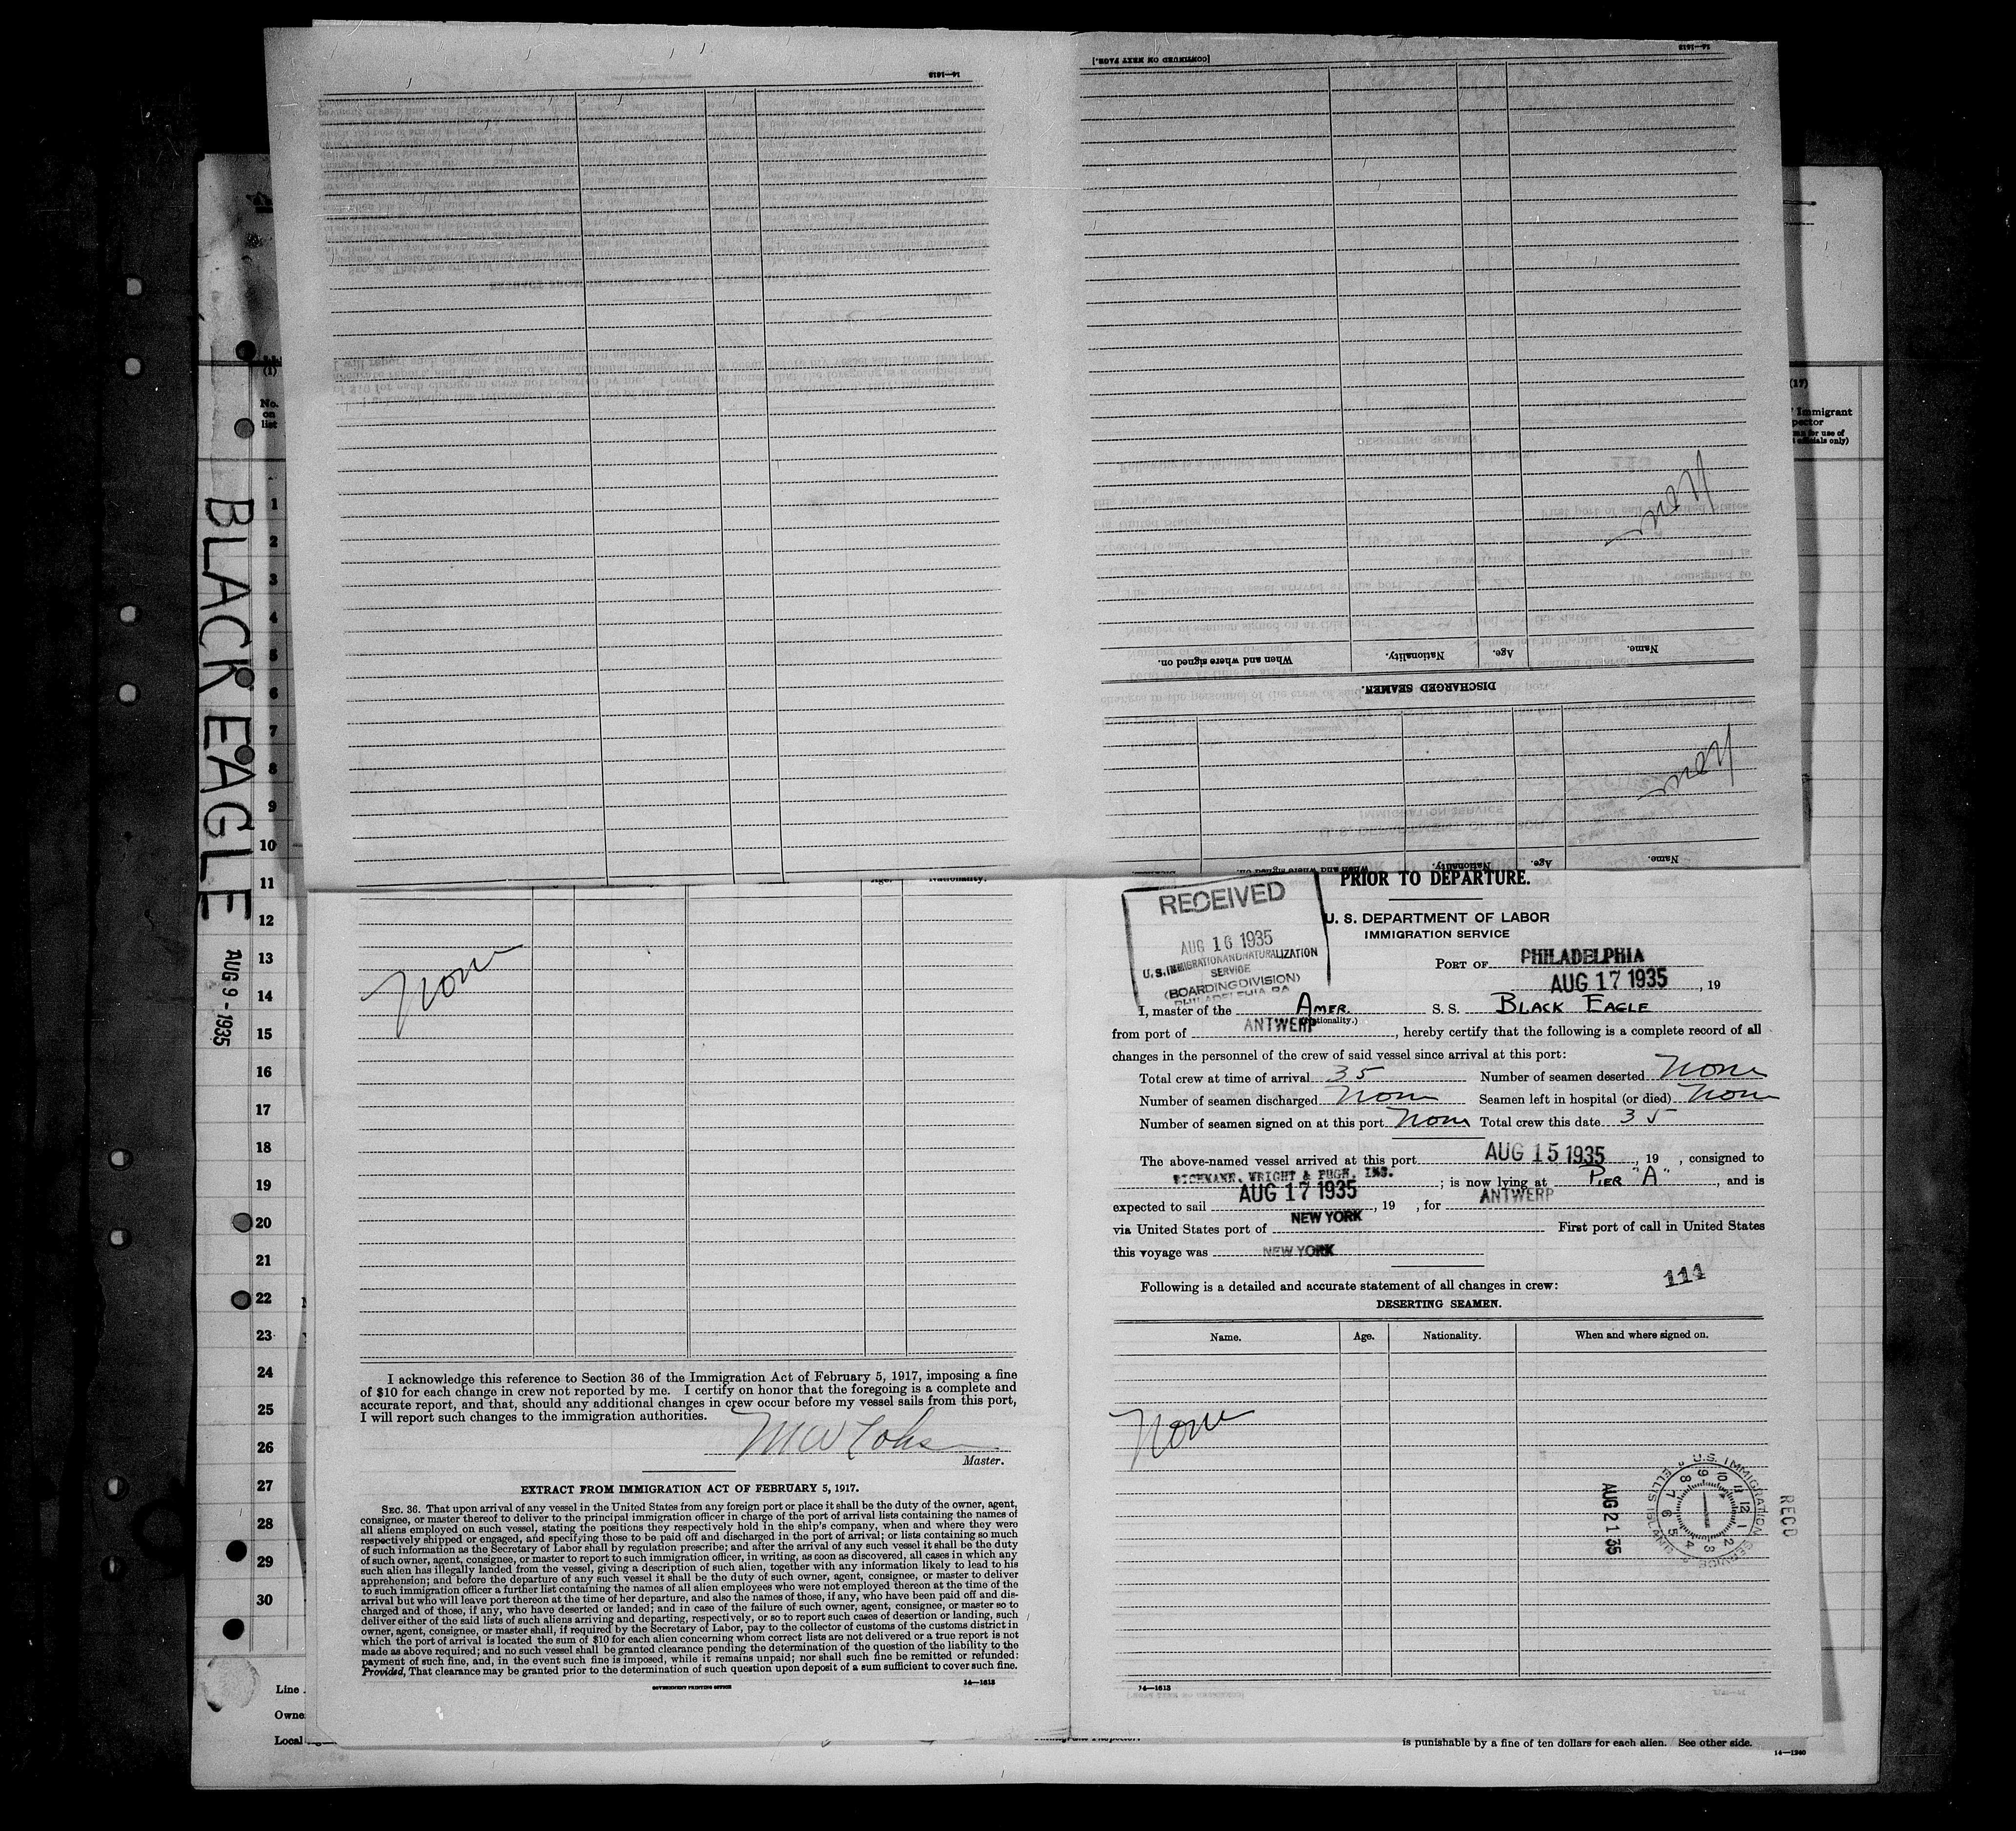 [CONTINUED ON NEXT PAGE.]
14—1613
14—1613
None
Name.
Age.
Nationality.
When and where signed on.
DISCHARGED SEAMEN.
None
Name.
Age.
Nationality.
When and where signed on.
(1)
No.
on
list
1
2
3
4
5
6
7
8
9
10
11
12
13
14
15
16
17
18
19
20
21
22
23
24
25
26
27
28
29
30
BLACK EAGLE
AUG 9 - 1935
Line
Owne
Local
(17)
Immigrant
officials only)
Age.
Nationality.
None
I acknowledge this reference to Section 36 of the Immigration Act of February 5, 1917, imposing a fine
of $10 for each change in crew not reported by me. I certify on honor that the foregoing is a complete and
accurate report, and that, should any additional changes in crew occur before my vessel sails from this port,
I will report such changes to the immigration authorities.
Master.
EXTRACT FROM IMMIGRATION ACT OF FEBRUARY 5, 1917.
SEC. 36. That upon arrival of any vessel in the United States from any foreign port or place it shall be the duty of the owner, agent,
consignee, or master thereof to deliver to the principal immigration officer in charge of the port of arrival lists containing the names of
all aliens employed on such vessel, stating the positions they respectively hold in the ship's company, when and where they were
respectively shipped or engaged, and specifying those to be paid off and discharged in the port of arrival; or lists containing so much
of such information as the Secretary of Labor shall by regulation prescribe; and after the arrival of any such vessel it shall be the duty
of such owner, agent, consignee, or master to report to such immigration officer, in writing, as soon as discovered, all cases in which any
such alien has illegally landed from the vessel, giving a description of such alien, together with any information likely to lead to his
apprehension; and before the departure of any such vessel it shall be the duty of such owner, agent, consignee, or master to deliver
to such immigration officer a further list containing the names of all alien employees who were not employed thereon at the time of the
arrival but who will leave port thereon at the time of her departure, and also the names of those, if any, who have been paid off and dis-
charged and of those, if any, who have deserted or landed; and in case of the failure of such owner, agent, consignee, or master so to
deliver either of the said lists of such aliens arriving and departing, respectively, or so to report such cases of desertion or landing, such
owner, agent, consignee, or master shall, if required by the Secretary of Labor, pay to the collector of customs of the customs district in
which the port of arrival is located the sum of $10 for each alien concerning whom correct lists are not delivered or a true report is not
made as above required; and no such vessel shall be granted clearance pending the determination of the question of the liability to the
payment of such fine, and, in the event such fine is imposed, while it remains unpaid; nor shall such fine be remitted or refunded:
Provided, That clearance may be granted prior to the determination of such question upon deposit of a sum sufficient to cover such fine.
GOVERNMENT PRINTING OFFICE
14—1613
PRIOR TO DEPARTURE.
RECEIVED
AUG 16 1935
U. S. IMMIGRATION AND NATURALIZATION
SERVICE
(BOARDING DIVISION)
PHILADELPHIA PA
U. S. DEPARTMENT OF LABOR
IMMIGRATION SERVICE
PORT OF PHILADELPHIA
AUG 17 1935, 19
I, master of the AMER. S. S. BLACK EAGLE
(Nationality.)
from port of ANTWERP, hereby certify that the following is a complete record of all
changes in the personnel of the crew of said vessel since arrival at this port:
Total crew at time of arrival 35 Number of seamen deserted None
Number of seamen discharged None Seamen left in hospital (or died) None
Number of seamen signed on at this port None Total crew this date 35
The above-named vessel arrived at this port AUG 15 1935, 19 , consigned to
WRIGHT & PUGH, INC.; is now lying at PIER "A", and is
expected to sail AUG 17 1935, 19 , for ANTWERP
via United States port of NEW YORK First port of call in United States
this voyage was NEW YORK
Following is a detailed and accurate statement of all changes in crew:
114
DESERTING SEAMEN.
Name. Age. Nationality. When and where signed on.
None
U.S. IMMIGRATION SERVICE ELLIS ISLAND
12 1 2 3 4 5 6 7 8 9 10 11
AUG 21 35
RECD
14—1613
is punishable by a fine of ten dollars for each alien. See other side.
14—1240